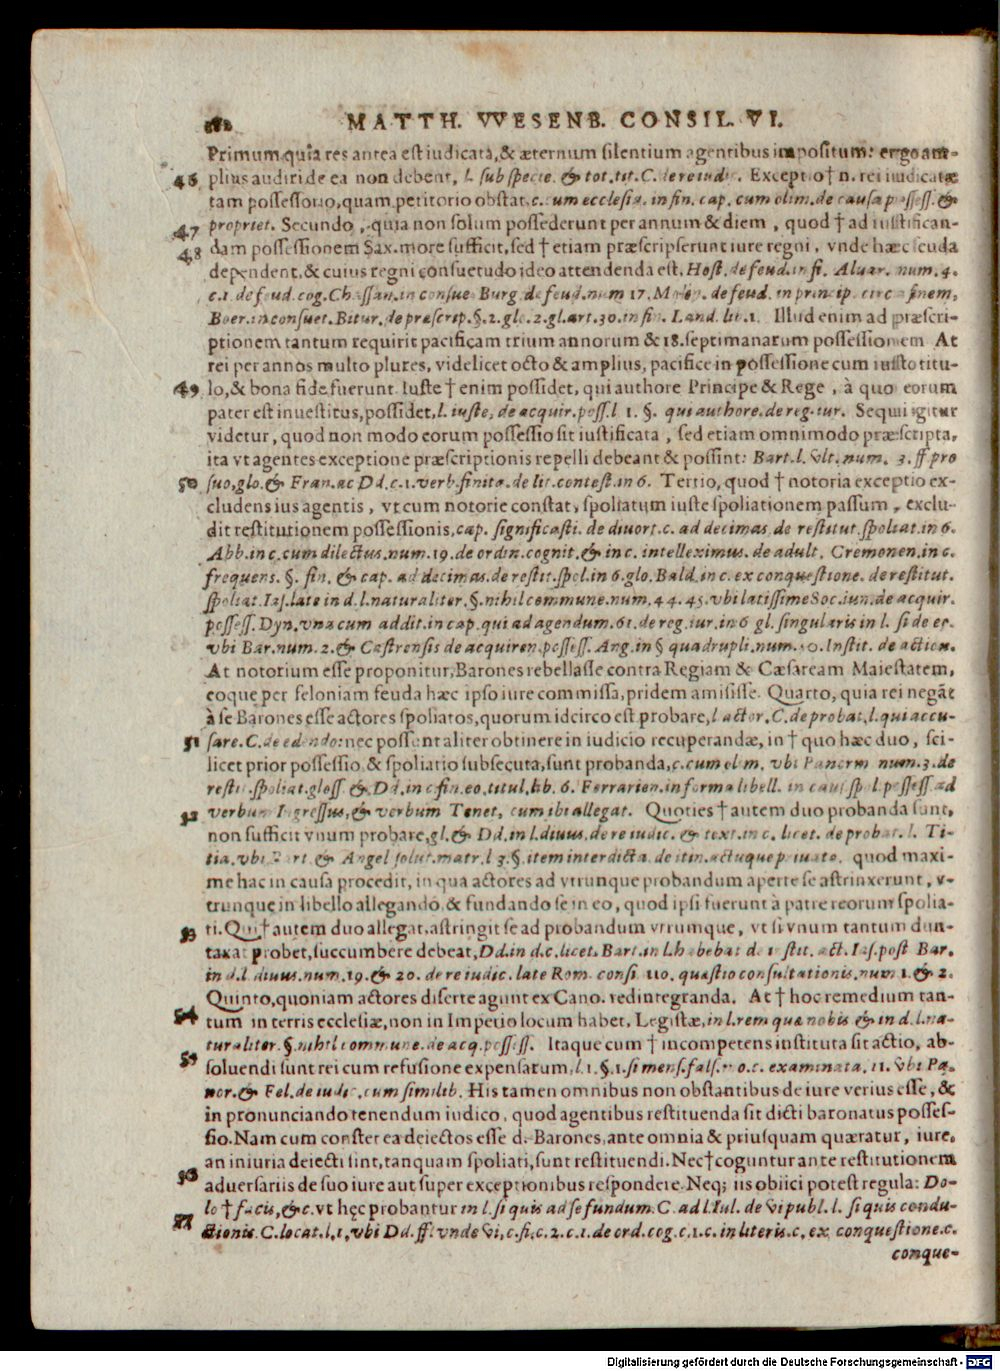 182 MATTH. VVESENB. CONSIL. VI.
Primum quia res antea est iudicata, & æternum silentium agentibus impositum: ergo am-
46 plius audiri de ea non debent, l. sub specie. & tot. tit. C. de re iudic. Exceptio † n. rei iudicatæ
tam possessorio, quam petitorio obstat. c. cum ecclesia. in fin. cap. cum olim. de causa possess. &
47 propriet. Secundo, quia non solum possederunt per annum & diem, quod † ad iustifican-
48 dam possessionem Sax. more sufficit, sed † etiam præscripserunt iure regni, vnde hæc feuda
dependent, & cuius regni consuetudo ideo attendenda est. Host. de feud. in fi. Aluar. num. 4.
c. 1. de feud. cog. Chassan. in consue. Burg. de feud. num 17. de feud. in princip. circa finem,
Boer. in consuet. Bitur. de præscrip. §. 2. glo. 2. gl. art. 30. in fin. Land. lit. 1. Illud enim ad præscri-
ptionem tantum requirit pacificam trium annorum & 18. septimanarum possessionem At
rei per annos multo plures, videlicet octo & amplius, pacifice in possessione cum iusto titu-
49 lo, & bona fide fuerunt. Iuste † enim possidet, qui authore Principe & Rege, à quo eorum
pater est inuestitus, possidet, l. iuste, de acquir. poss. l 1. §. qui authore. de reg. iur. Sequi igitur
videtur, quod non modo eorum possessio sit iustificata, sed etiam omnimodo præscripta,
ita vt agentes exceptione præscriptionis repelli debeant & possint: Bart. l. vlt. num. 3. ff pro
50 suo, glo. & Fran. ac Dd. c. 1. verb. finita. de lit. contest. in 6. Tertio, quod † notoria exceptio ex-
cludens ius agentis, vt cum notorie constat, spoliatum iuste spoliationem passum, exclu-
dit restitutionem possessionis, cap. significasti. de diuort. c. ad decimas de restitut. spoliat. in 6.
Abb. in c. cum dilectus. num. 19. de ordin. cognit. & in c. intelleximus. de adult. Cremonen. in c.
frequens. §. fin. & cap. ad decimas. de restit. spol. in 6. glo. Bald. in c. ex conquestione. de restitut.
spoliat. Ias. late in d. l. naturaliter. §. nihil commune. num. 44. 45. vbi latissime Soc. iun. de acquir.
possess. Dyn. vna cum addit. in cap. qui ad agendum. 61. de reg. iur. in 6 gl. singularis in l. si de eo.
vbi Bar. num. 2. & Castrensis de acquiren. possess. Ang. in § quadrupli. num. 50. Instit. de action.
At notorium esse proponitur, Barones rebellasse contra Regiam & Cæsaream Maiestatem,
eoque per feloniam feuda hæc ipso iure commissa, pridem amisisse. Quarto, quia rei negãt
à se Barones esse actores spoliatos, quorum idcirco est probare, l actor. C. de probat. l. qui accu-
51 sare. C. de edendo: nec possent aliter obtinere in iudicio recuperandæ, in † quo hæc duo, sci-
licet prior possessio & spoliatio subsecuta, sunt probanda, c. cum olim. vbi Panorm num. 3. de
restit. spoliat. gloss. & Dd. in c. fin. eo. titul. lib. 6. Ferrarien. in forma libell. in causs spol. possess. ad
52 verbum Ingressus, & verbum Tenet, cum ibi allegat. Quoties † autem duo probanda sunt,
non sufficit vnum probare, gl. & Dd. in l. diuus. de re iudic. & text. in c. licet. de probat. l. Ti-
tia. vbi Bart. & Angel solut. matr. l 3. § item interdicta. de itin. actuque priuato. quod maxi-
me hac in causa procedit, in qua actores ad vtrunque probandum aperte se astrinxerunt, v-
trunque in libello allegando & fundando se in eo, quod ipsi fuerunt à patre reorum spolia-
53 ti. Qui † autem duo allegat, astringit se ad probandum vtrumque, vt si vnum tantum dun-
taxat probet, succumbere debeat, Dd. in d. c. licet. Bart. in l. habebat de instit. act. Ias. post Bar.
in d. l diuus. num. 19. & 20. de re iudic. late Rom. consi. 110. quæstio consultationis. num 1. & 2.
Quinto, quoniam actores diserte agunt ex Cano. redintegranda. At † hoc remedium tan-
54 tum in terris ecclesiæ, non in Imperio locum habet, Legistæ, in l. rem quæ nobis & in d. l. na-
turaliter. §. nihil commune. de acq. possess. Itaque cum † incompetens instituta sit actio, ab-
55 soluendi sunt rei cum refusione expensarum, l. 1. §. 1. si mens. fals. o. c. examinata. 11. vbi Pa-
nor. & Fel. de iudic. cum similib. His tamen omnibus non obstantibus de iure verius esse, &
in pronunciando tenendum iudico, quod agentibus restituenda sit dicti baronatus posses-
sio. Nam cum constet ea deiectos esse d. Barones, ante omnia & priusquam quæratur, iure,
an iniuria deiecti sint, tanquam spoliati, sunt restituendi. Nec † coguntur ante restitutionem
56 aduersariis de suo iure aut super exceptionibus respondere. Neq; iis obiici potest regula: Do-
lo † facis, &c. vt hęc probantur in l. si quis ad se fundum. C. ad l. Iul. de vi publ. l. si quis condu-
57 ctionis. C. locat. l. 1, vbi Dd. ff. vnde vi, c. fi, c. 2. c. 1. de ord. cog. c. 1. c. in literis. c. ex conquestione. c.
conque-
Digitalisierung gefördert durch die Deutsche Forschungsgemeinschaft - DFG